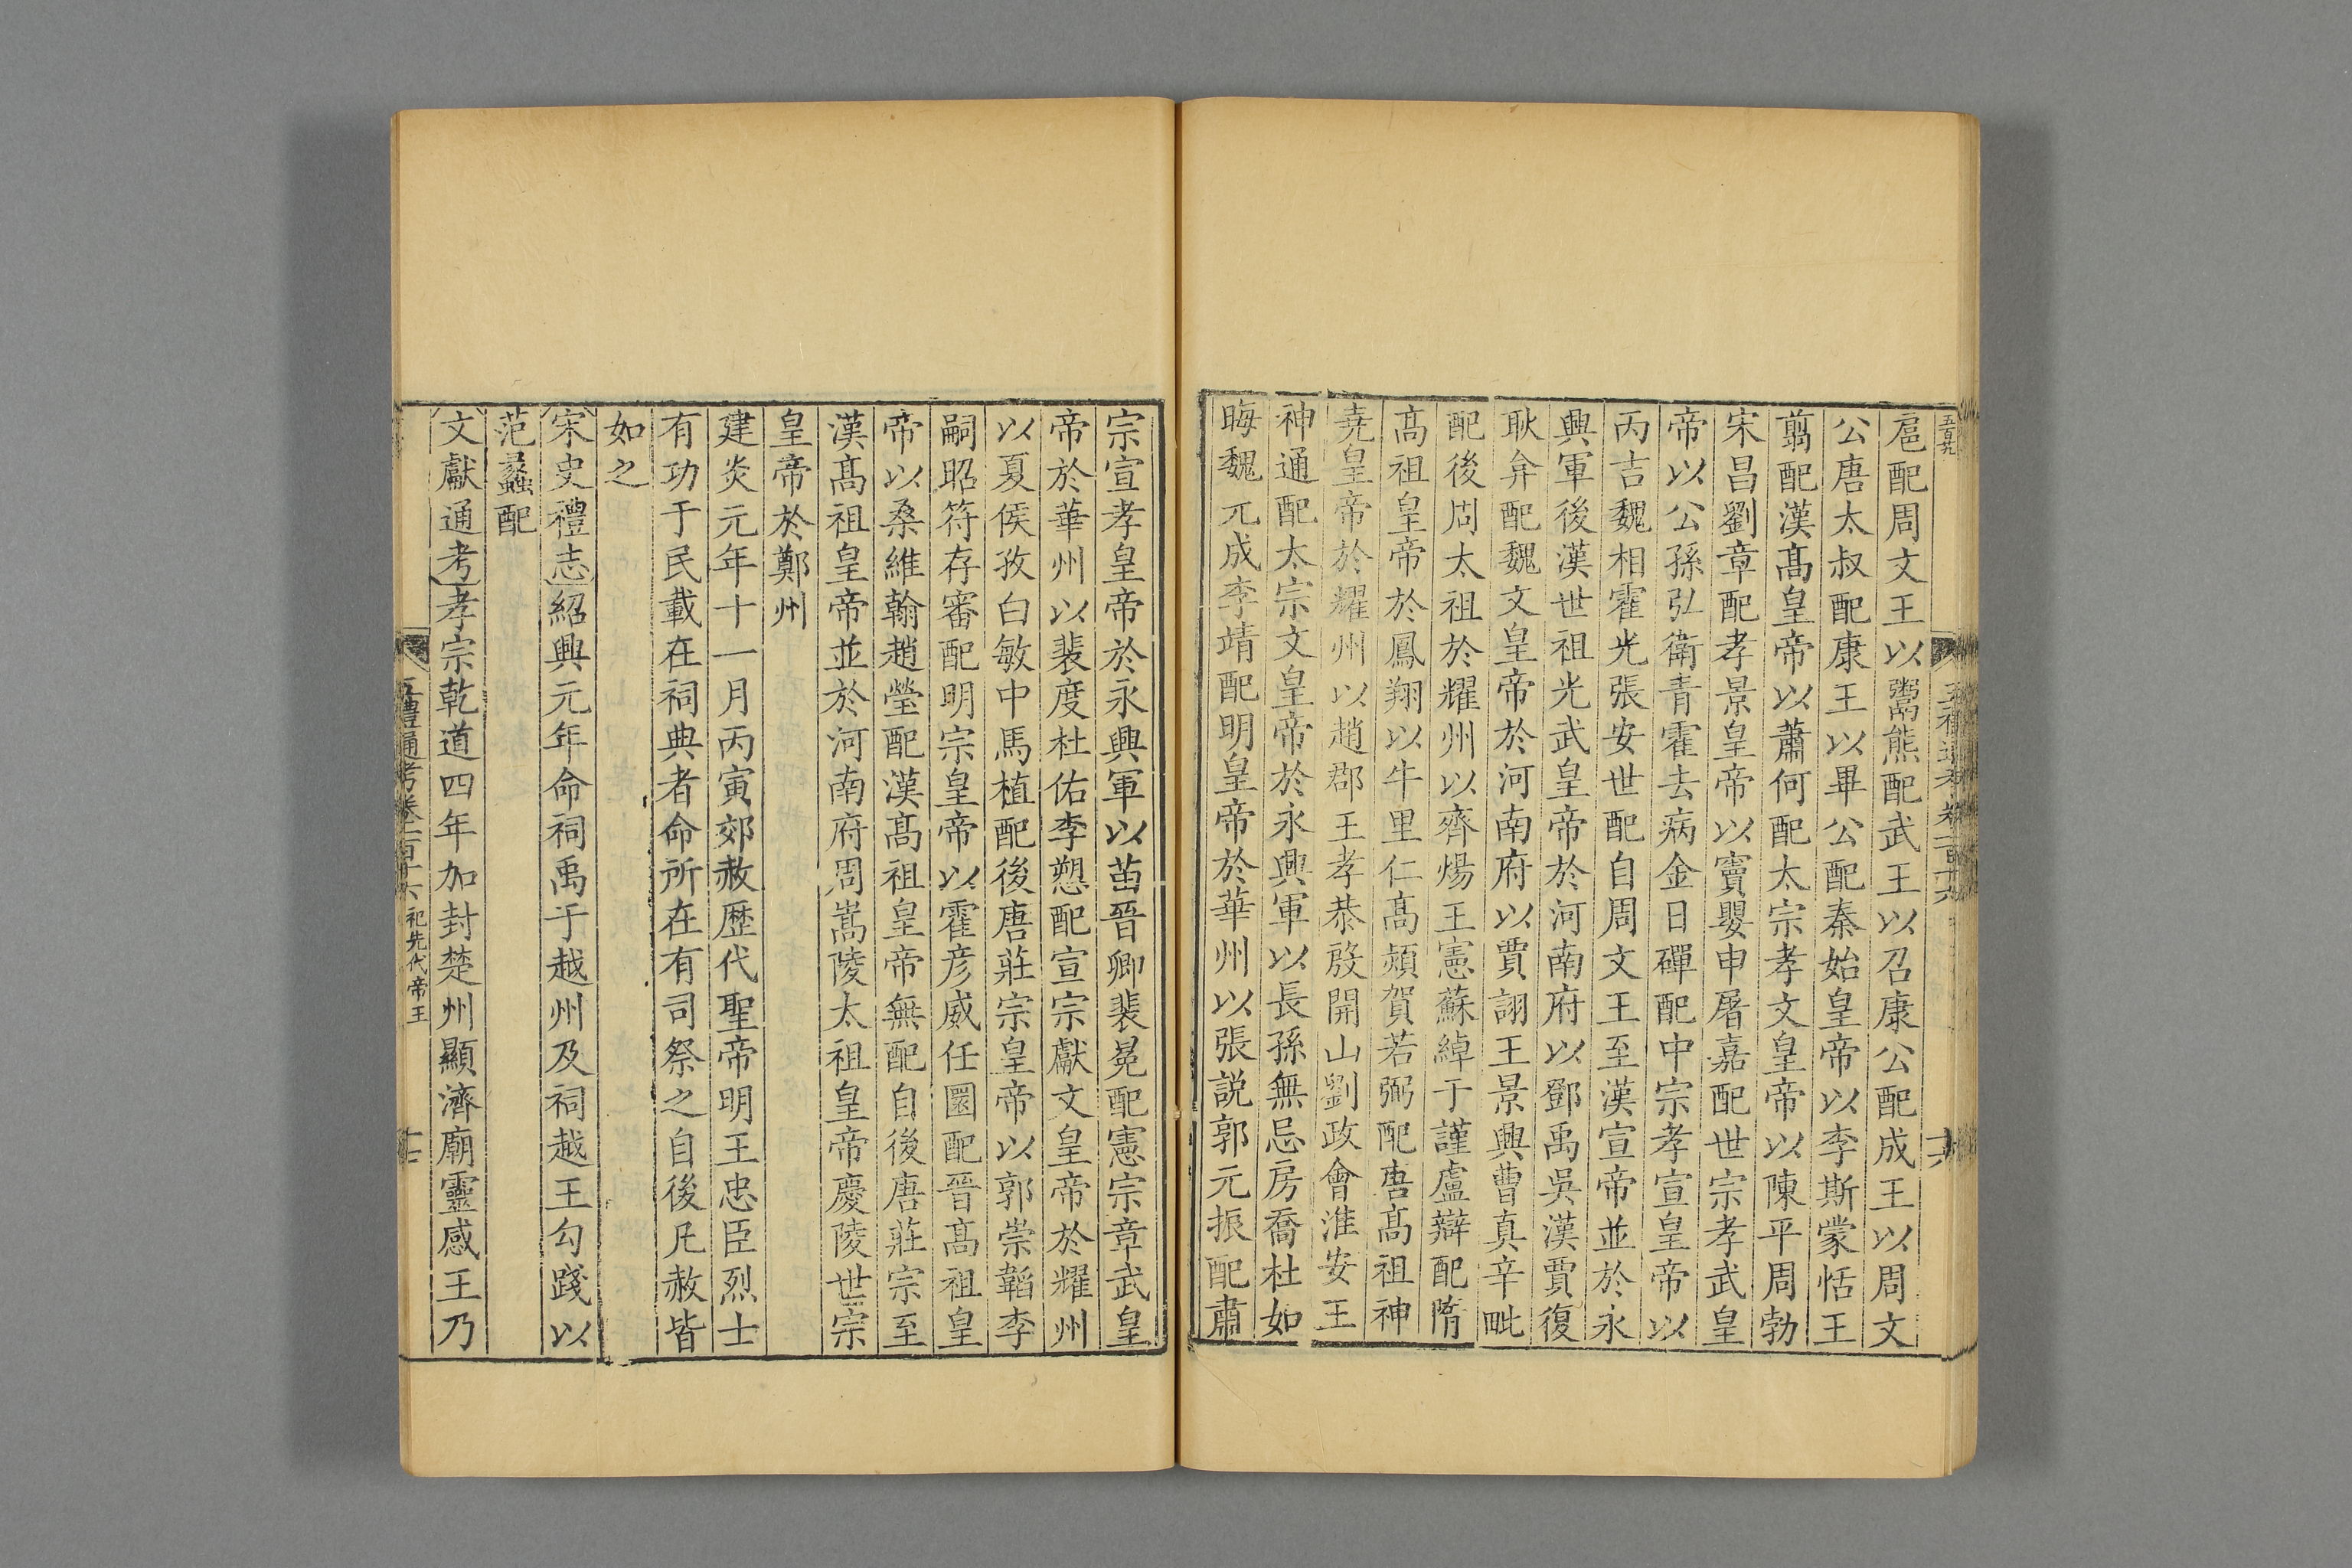 五百卅
五禮通考卷一百十六
十六
扈配周文王以鬻熊配武王以召康公配成王以周文
公唐太叔配康王以畢公配秦始皇帝以李斯蒙恬王
翦配漢髙皇帝以蕭何配太宗孝文皇帝以陳平周勃
宋昌劉章配孝景皇帝以竇嬰申屠嘉配世宗孝武皇
帝以公孫弘衛青霍去病金日磾配中宗孝宣皇帝以
丙吉魏相霍光張安世配自周文王至漢宣帝並於永
興軍後漢世祖光武皇帝於河南府以鄧禹吳漢賈復
耿弇配魏文皇帝於河南府以賈詡王景興曹真辛毗
配後周太祖於耀州以齊煬王憲蘇綽于謹盧辯配隋
髙祖皇帝於鳳翔以牛里仁髙熲賀若弼配唐髙祖神
堯皇帝於耀州以趙郡王孝恭殷開山劉政會淮安王
神通配太宗文皇帝於永興軍以長孫無忌房喬杜如
晦魏元成李靖配明皇帝於華州以張説郭元振配肅
宗宣孝皇帝於永興軍以苗晉卿裴冕配憲宗章武皇
帝於華州以裴度杜佑李愬配宣宗獻文皇帝於耀州
以夏侯孜白敏中馬植配後唐莊宗皇帝以郭崇韜李
嗣昭符存審配明宗皇帝以霍彦威任圜配晉髙祖皇
帝以桑維翰趙瑩配漢髙祖皇帝無配自後唐莊宗至
漢髙祖皇帝並於河南府周嵩陵太祖皇帝慶陵世宗
皇帝於鄭州
建炎元年十一月丙寅郊赦歷代聖帝明王忠臣烈士
有功于民載在祠典者命所在有司祭之自後凡赦皆
如之
宋史禮志紹興元年命祠禹于越州及祠越王勾踐以
范蠡配
文獻通考孝宗乾道四年加封楚州顯濟廟靈感王乃
五禮通考卷一百十六 祀先代帝王
十七